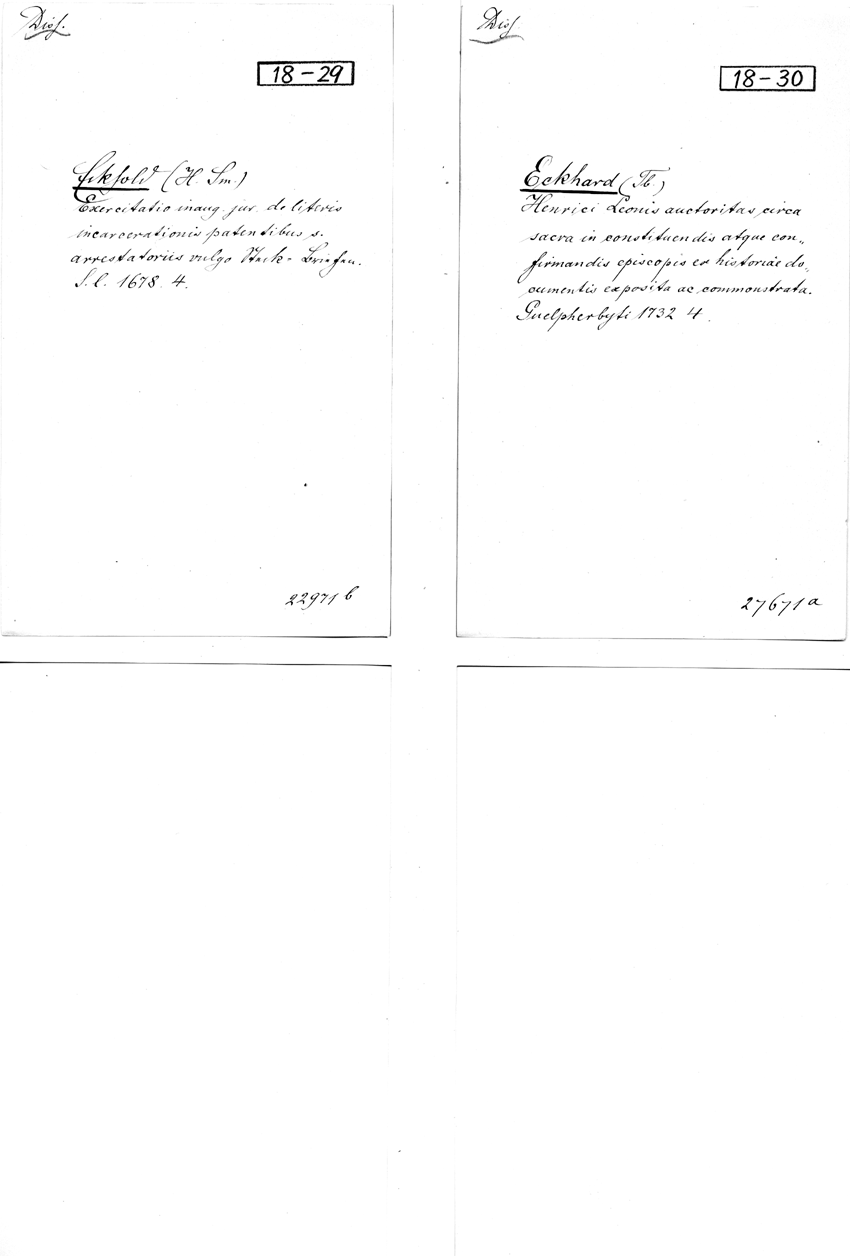 Diss.
18-29
Eckhold (H. Sm.)
Exercitatio inaug. jur. de literis
incarcerationis patentibus s.
arrestatoriis vulgo Steck-Briefen.
S. l. 1678. 4.
22971 b
Diss.
18-30
Eckhard (Tb.)
Henrici Leonis auctoritas circa
sacra in constituendis atque con„
firmandis episcopis ex historiae do„
cumentis exposita ac commonstrata.
Guelpherbyti 1732 4.
27671 a